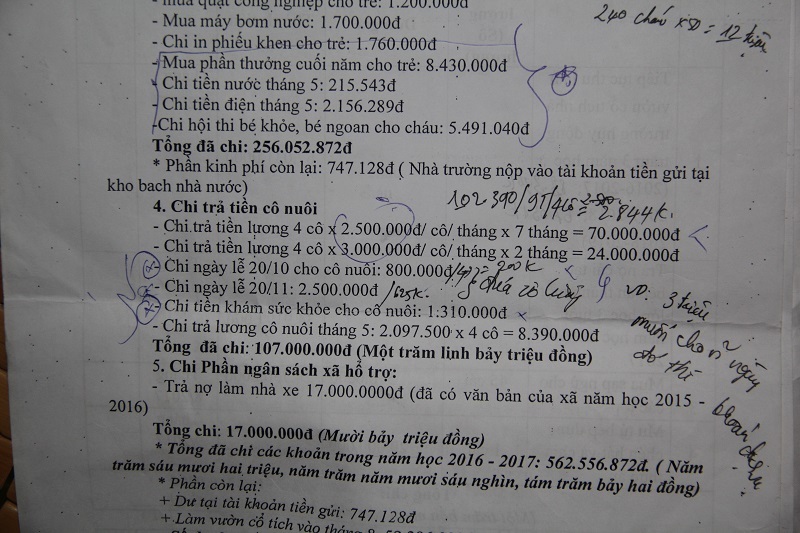 - mua quạt công nghiệp cho trẻ: 1.200.000đ
- Mua máy bơm nước: 1.700.000đ
- Chi in phiếu khen cho trẻ: 1.760.000đ
- Mua phần thưởng cuối năm cho trẻ: 8.430.000đ
- Chi tiền nước tháng 5: 215.543đ
- Chi tiền điện tháng 5: 2.156.289đ
-Chi hội thi bé khỏe, bé ngoan cho cháu: 5.491.040đ
Tổng đã chi: 256.052.872đ
* Phần kinh phí còn lại: 747.128đ ( Nhà trường nộp vào tài khoản tiền gửi tại
kho bach nhà nước)
240 cháu x 50 = 12 triệu
4. Chi trả tiền cô nuôi
102 390/95/465 = 2.844K.
- Chi trả tiền lương 4 cô x 2.500.000đ/ cô/ tháng x 7 tháng = 70.000.000đ
- Chi trả tiền lương 4 cô x 3.000.000đ/ cô/ tháng x 2 tháng = 24.000.000đ
- Chi ngày lễ 20/10 cho cô nuôi: 800.000đ = 200K
- Chi ngày lễ 20/11: 2.500.000đ /625K.
- Chi tiền khám sức khỏe cho cô nuôi: 1.310.000đ
- Chi trả lương cô nuôi tháng 5: 2.097.500 x 4 cô = 8.390.000đ
Tổng đã chi: 107.000.000đ (Một trăm linh bảy triệu đồng)
3 triệu
cho
ngày
5. Chi Phần ngân sách xã hỗ trợ:
- Trả nợ làm nhà xe 17.000.0000đ (đã có văn bản của xã năm học 2015 -
2016)
Tổng chi: 17.000.000đ (Mười bảy triệu đồng)
* Tổng đã chi các khoản trong năm học 2016 - 2017: 562.556.872đ. ( Năm
trăm sáu mươi hai triệu, năm trăm năm mươi sáu nghìn, tám trăm bảy hai đồng)
* Phần còn lại:
+ Dư tại tài khoản tiền gửi: 747.128đ
+ Làm vườn cổ tích vào tháng